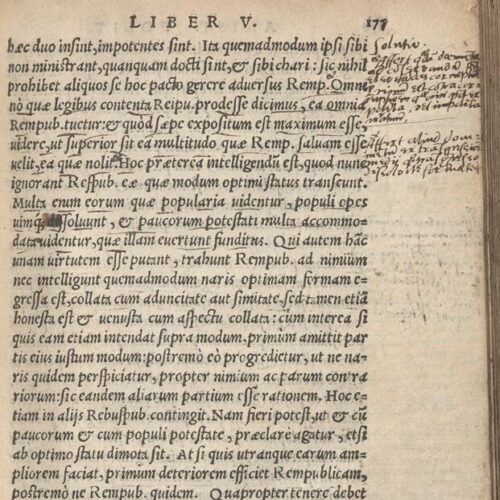 LIBER V. 177
hæc duo insint, impotentes sint. Ita quemadmodum ipsi sibi
non ministrant, quanquam docti sint, & sibi chari: sic nihil
prohibet aliquos se hoc pacto gerere adversus Remp. Omni
nò quæ legibus contenta Reipu. prodesse dicimus, ea omnia
Rempub. tuetur: & quòd sæpe expositum est maximum esse,
videre, ut superior sit ea multitudo quæ Remp. salvam esse
velit, ea quæ nolit. Hoc præterea intelligendũ est, quod nunc
ignorant Respub. eæ quæ modum optimi status transeunt.
Multa enim eorum quæ popularia videntur, populi opes
uimq́; soluunt, & paucorum potestati multa accommo-
data videntur, quæ illam evertunt funditus. Qui autem hãc
unam virtutem esse putant, trahunt Rempub. ad nimium
nec intelligunt quemadmodum naris optimam formam e-
gressa est, collata cum aduncitate aut simitate, sed tamen etiã
honesta est & venusta cum aspectu collata: cùm interea si
quis eam etiam intendat supra modum, primùm amittit par
tis eius iustum modum: postremò eò progredietur, ut ne na-
ris quidem perspiciatur, propter nimium ac parum contra
riorum: sic eandem aliarum partium esse rationem. Hoc e-
tiam in alijs Rebuspub. contingit. Nam fieri potest, ut & cũ
paucorum & cum populi potestate, præclarè agatur, etsi
ab optimo statu dimota sit. At si quis utranque earum am-
pliorem faciat, primùm deteriorem efficiet Rempublicam,
postremò ne Rempub. quidem. Quapropter tenere debet
Solutio.